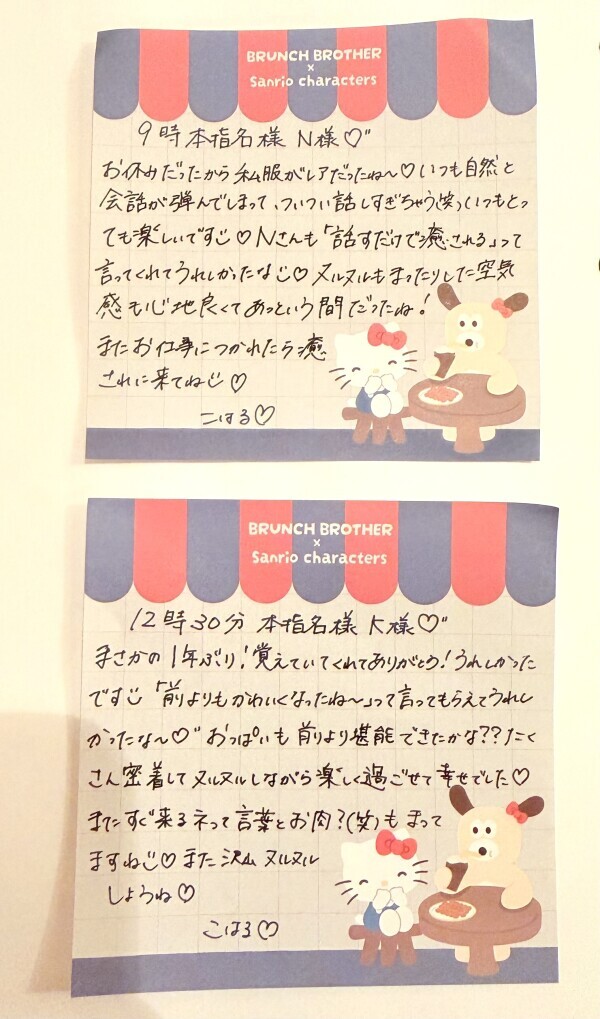 BRUNCH BROTHER
×
Sanrio characters
9時 本指名様 N様♡"
お休みだったから私服がレアだったね〜♡いつも自然と
会話が弾んでしまって、ついつい話しすぎちゃう(笑)いつもとっ
ても楽しいです♡Nさんも「話すだけで癒される」って
言ってくれてうれしかったな♡ヌルヌルもまったりした空気
感も心地良くてあっという間だったね！
またお仕事につかれたら癒
されに来てね♡
こはる♡
BRUNCH BROTHER
×
Sanrio characters
12時30分 本指名様 K様♡"
まさかの1年ぶり！覚えていてくれてありがとう！うれしかった
です「前よりもかわいくなったね〜」って言ってもらえてうれし
かったな〜♡"おっぱいも前より堪能できたかな??たく
さん密着してヌルヌルしながら楽しく過ごせて幸せでした♡
またすぐ来るネって言葉とお肉?(笑)もまって
ますね♡また沢山ヌルヌル
しようね♡
こはる♡